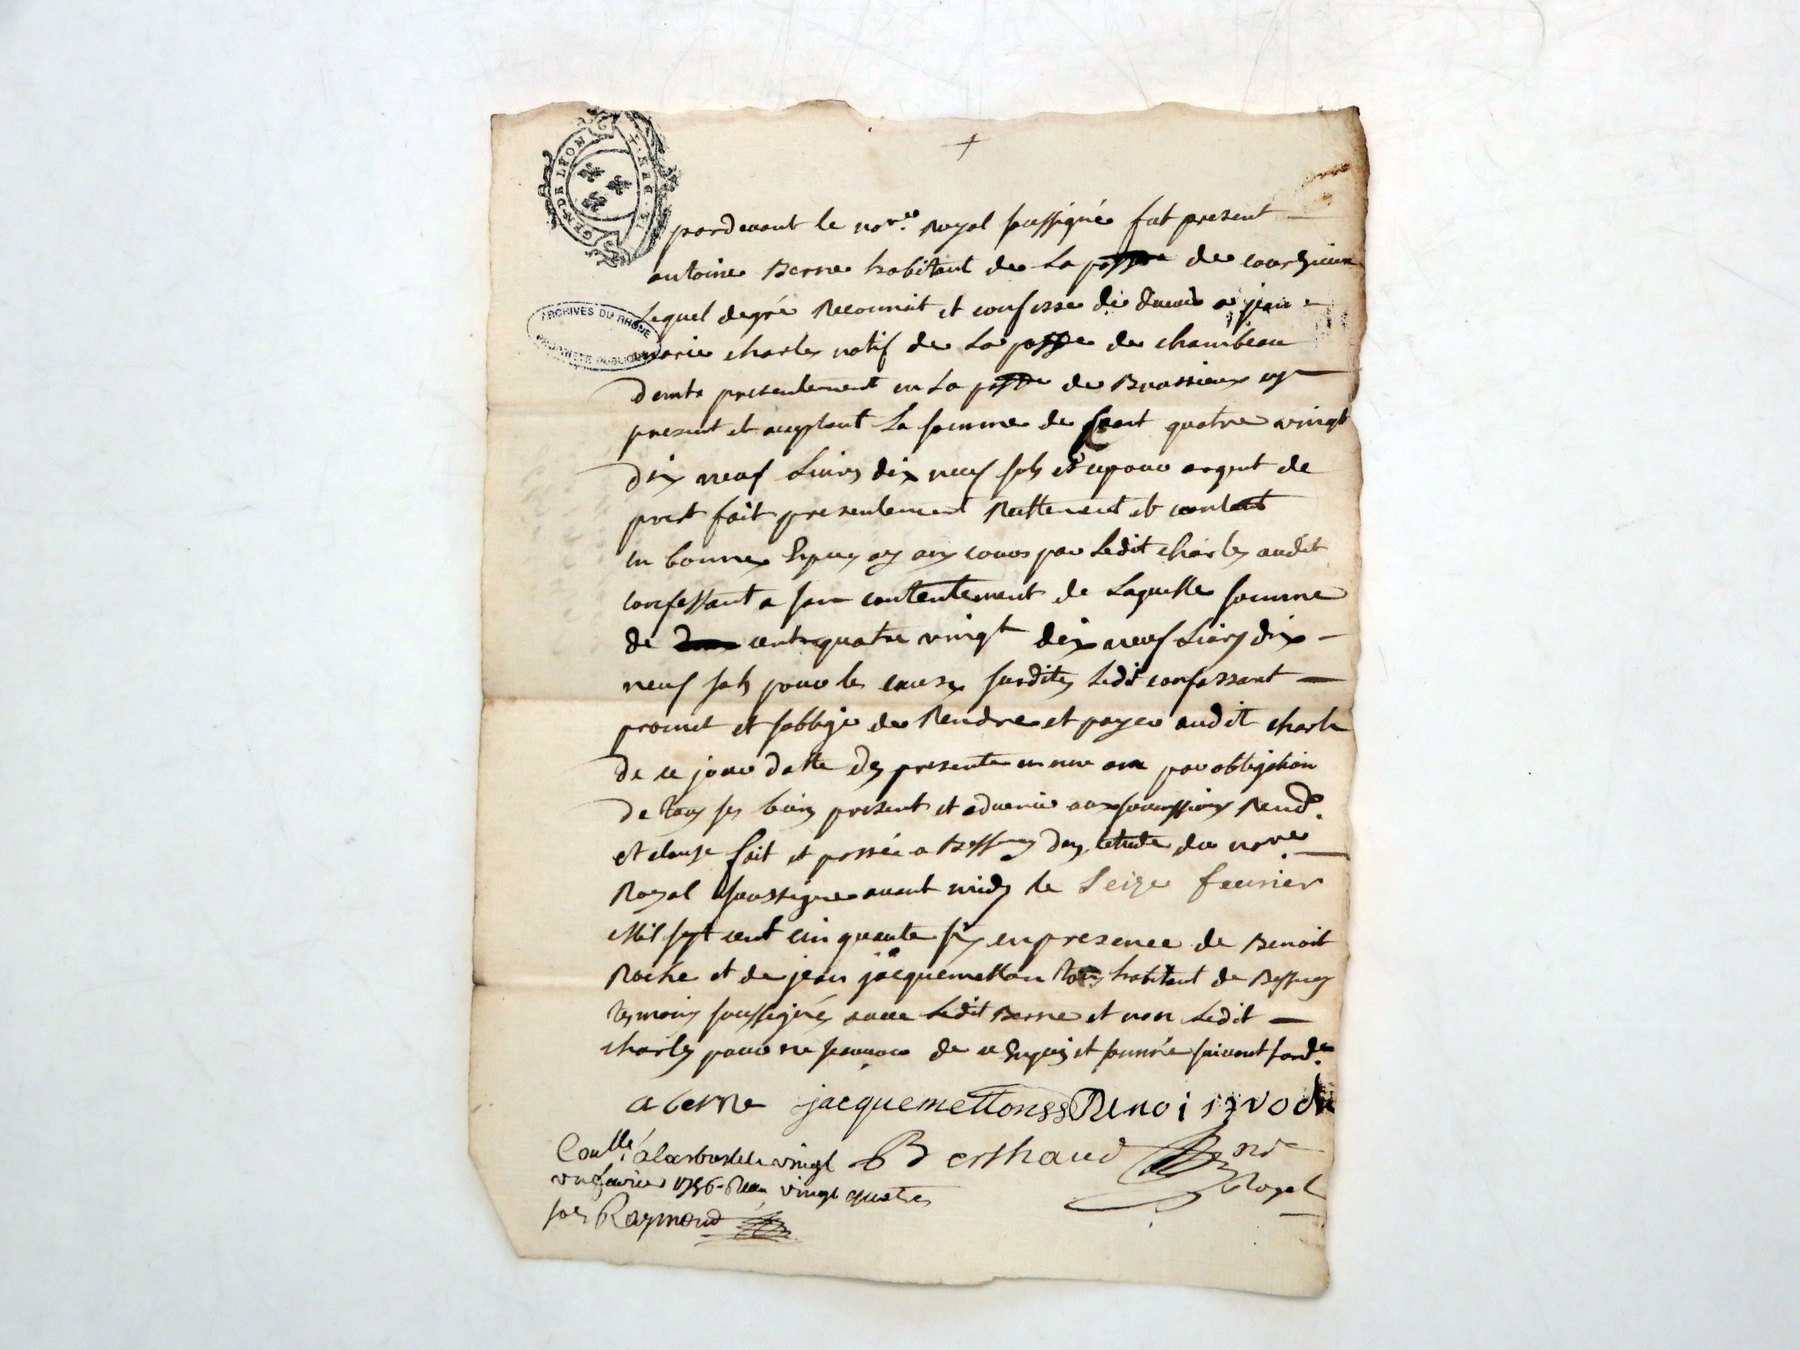 GEN. DE LYON
ARCHIVES DU RHONE
PROPRIETE PUBLIQUE
pardevant le nore. Royal soussigné fut present
antoine Berne habitant de La posse de courzieux
Lequel degré Reconnoit et confesse de devoir a jean
marie charles natif de La posse de chambeau
demt presentement en La posse de Brussieux
present et acceptant La somme de cent quatre vingt
dix neuf Livres dix neuf sols et cepour argent de
prest fait presentement Reellement et contant
en bonnes Especes ayant cours par Ledit charles audit
confessant a son contentement de Laquelle somme
de cent quatre vingt dix neuf Livres dix
neuf sols pour les causes susdites Ledit confessant
promet et soblige de Rendre et payer audit charles
de ce jour datte des presentes en un an par obligation
de tous ses biens present et advenir aux soumissions Rend.
et clause fait et passé a Bessenay dans letude du nore.
Royal soussigne avant midy le Seize fevrier
Mil sept cent cinquante six en presence de Benoit
Roche et de jean jacquemetton habitant de Bessenay
tesmoins soussignés avec Ledit Berne et non Ledit
charles pour ne scavoir de ce Enquis et sommé suivant lord.e
a berne jacquemetton Benoi roche
Berthaud nre
Royal
Conllé a Larbresle le vingt
un fevrier 1756 Reçu vingt quatre
sols Raymond